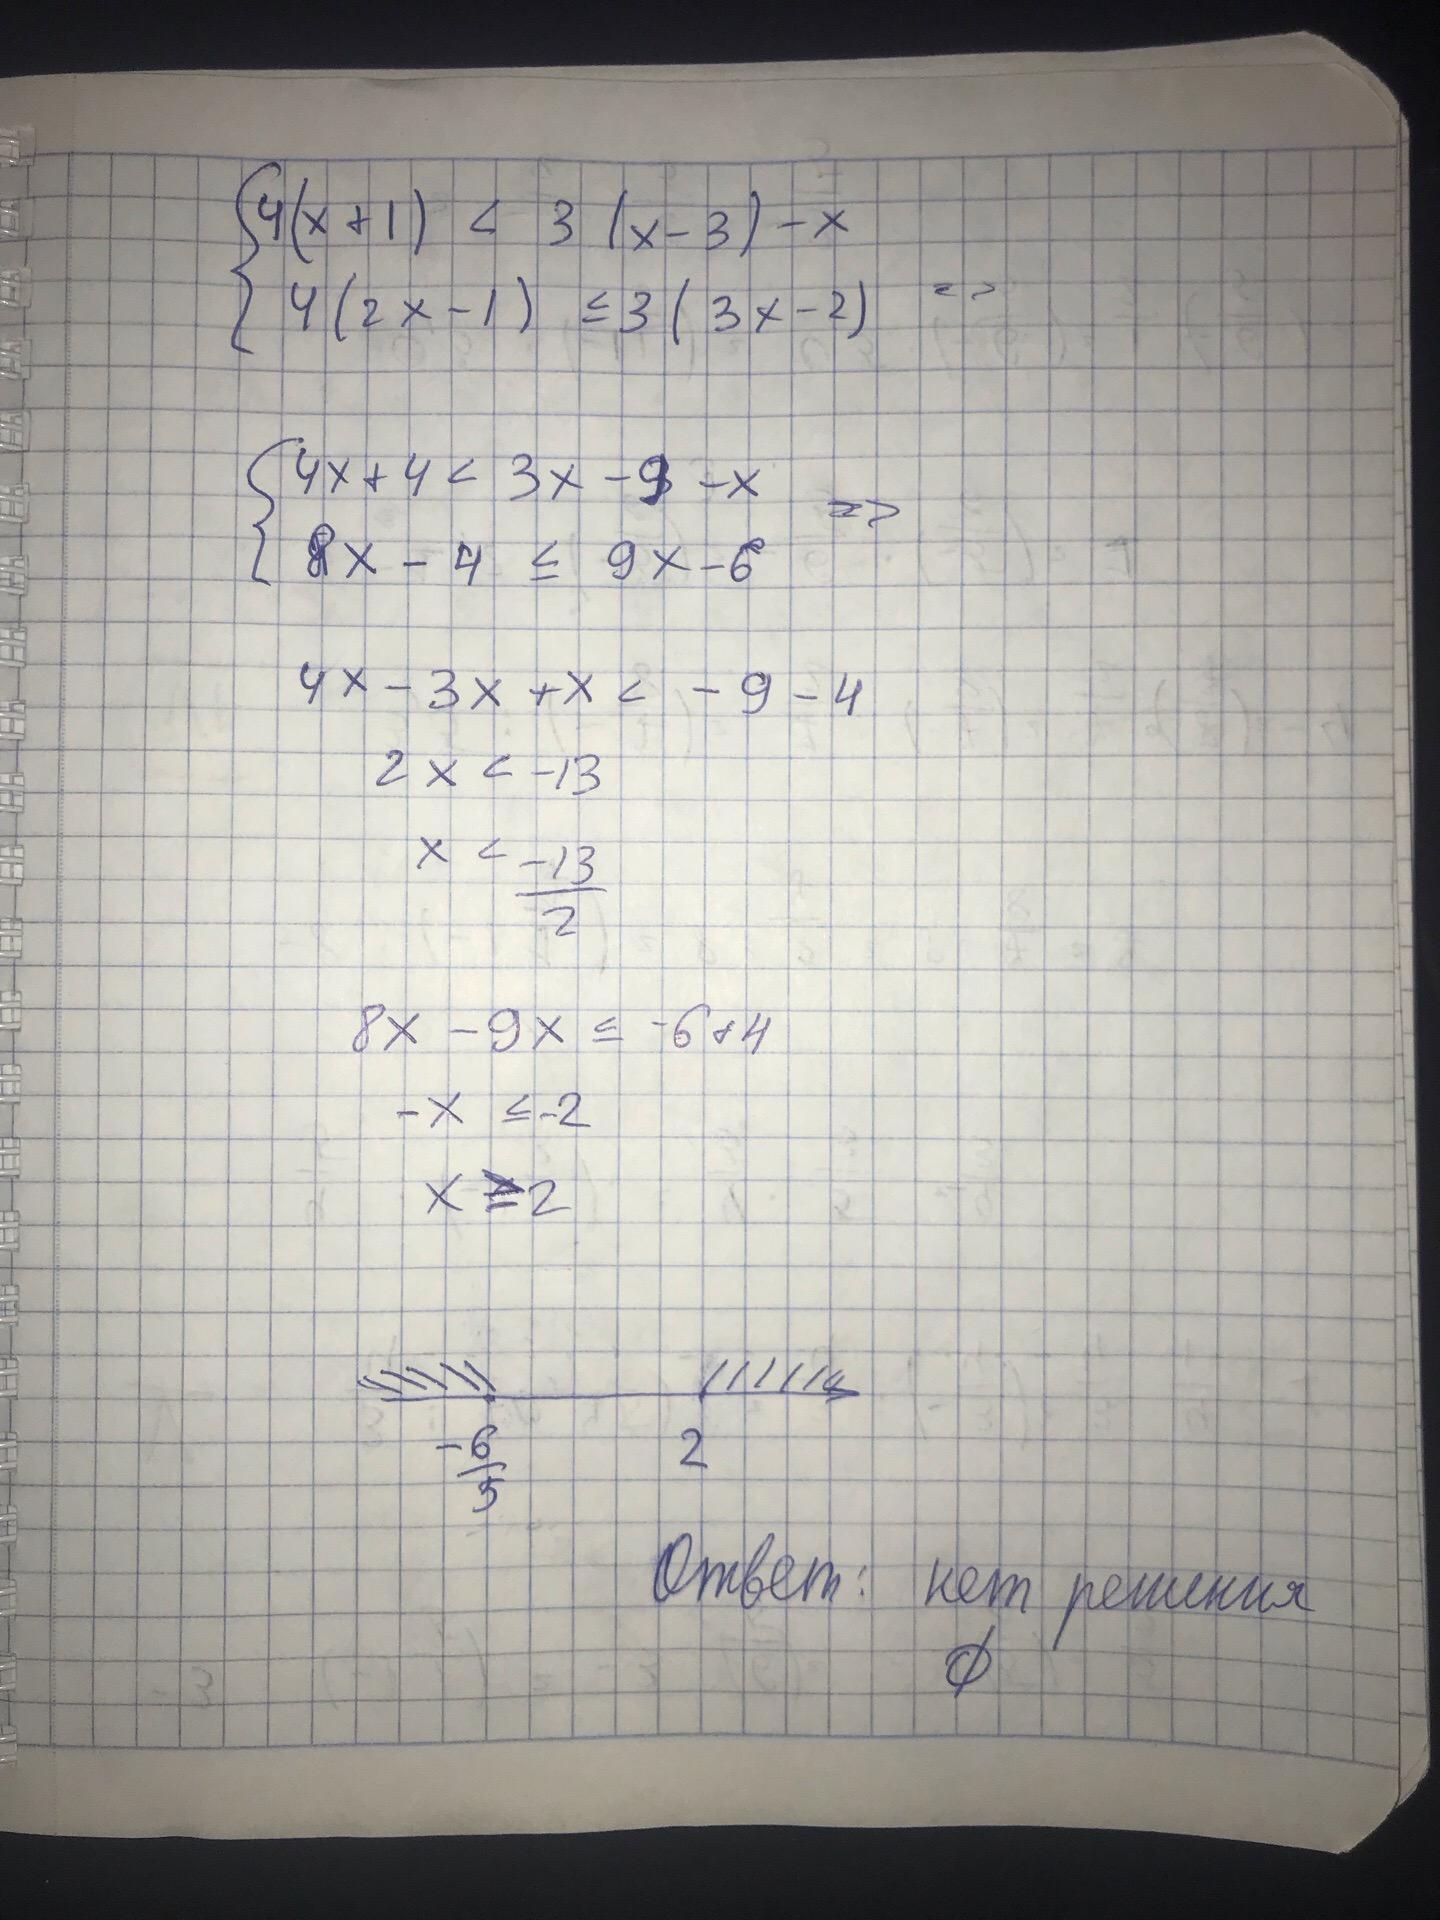 {4(x+1) < 3(x-3)-x
4(2x-1) ≤ 3(3x-2) =>
{4x+4 < 3x-9-x
8x-4 ≤ 9x-6 =>
4x-3x+x < -9-4
2x < -13
x < -13/2
8x-9x ≤ -6+4
-x ≤ -2
x ≥ 2
-6/5 2
Ответ: нет решения
∅